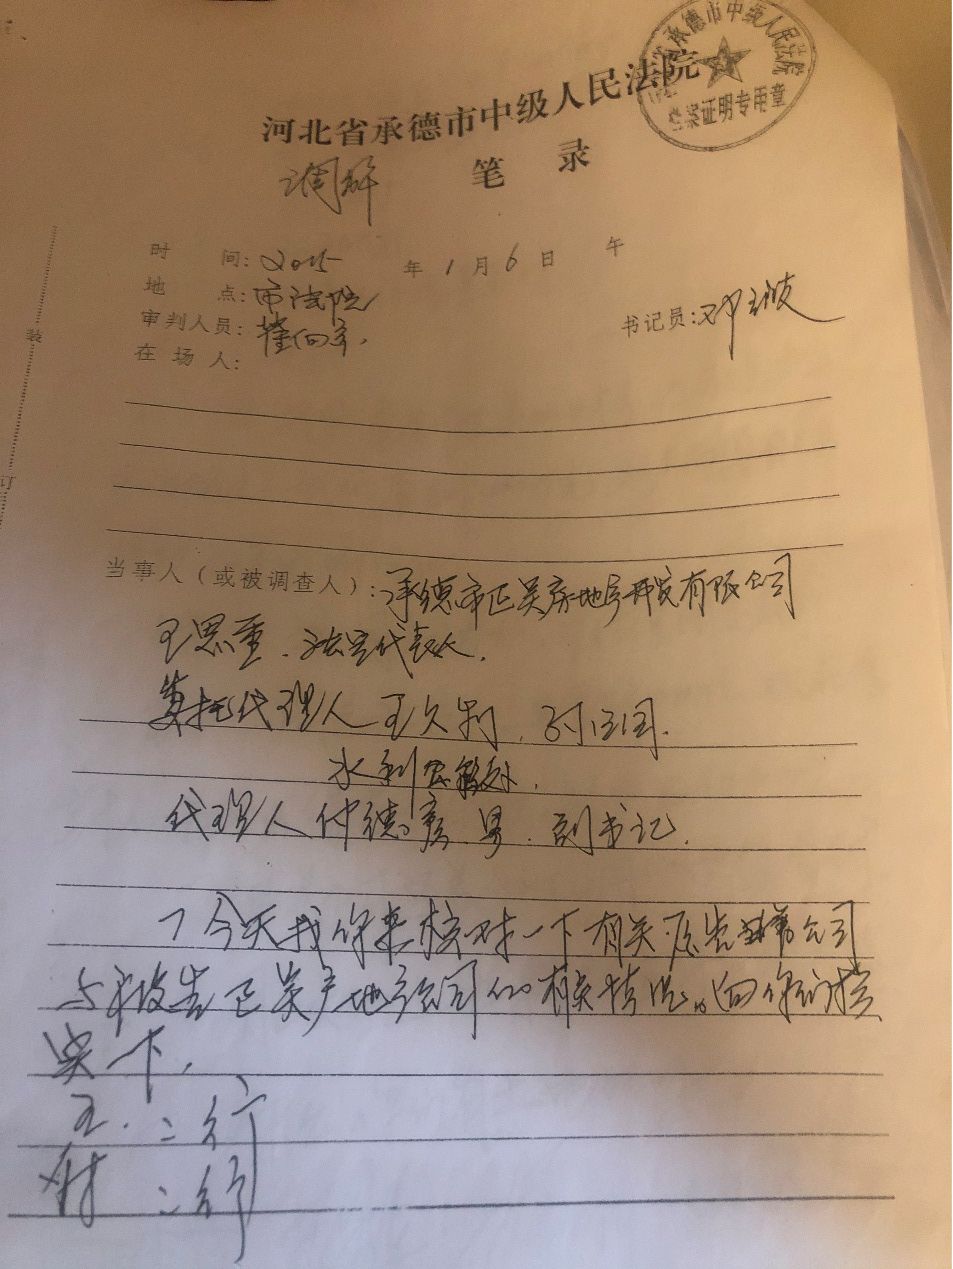 承德市中级人民法院
档案证明专用章
河北省承德市中级人民法院
调解 笔 录
时 间: 2015 年 1 月 6 日 午
地 点: 市法院
审判人员: 书记员: 邓
在 场 人:
装
订
当事人（或被调查人）: 承德市正昊房地产开发有限公司
王思重、法定代表人.
委托代理人 王久利、
水利
代理人 仲德彦 男、副书记.
今天找你来核对一下有关原告 公司
与被告正昊产地产公司的有关情况。向你们核
实一下、
王. : 行
: 行